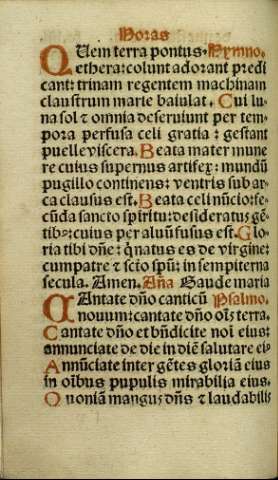 Horas
QUem terra pontus. Hymno.
ethera: colunt adorant predi
cant: trinam regentem machinam
claustrum marie baiulat. Cui lu
na sol ⁊ omnia deserviunt per tem
pora perfusa celi gratia: gestant
puelle viscera. Beata mater mune
re cuius supernus artifex: mundũ
pugillo continens: ventris sub ar
ca clausus est. Beata celi nũcio: fe
cũda sancto spiritu: desideratus gẽ
tibꝰ: cuius per aluũ fusus est. Glo
ria tibi dñe: q̃natus es de virgine:
cumpatre ⁊ scto spũ: in sempiterna
secula. Amen. Aña Gaude maria
CAntate dño canticũ Psalmo.
nouum: cantate dño oĩs terra.
Cantate dño et bñdicite noĩ eius:
annunciate de die in diẽ salutare eiꝰ
Annũciate inter gẽtes gloriã eius
in oĩbus pupulis mirabilia eius.
Quoniã mangus dñs ⁊ laudabilis